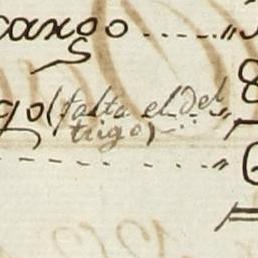 cargo
go (falta el del
trigo)